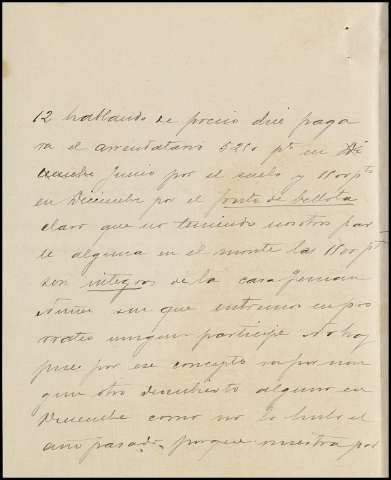 12 hallando de precio dice paga
ra el arrendatario 5250 pts en Di
ciembre Junio por el suelo y 1800 pts
en Diciembre por el fruto de bellota
claro que no teniendo nosotros par
te alguna en el monte las 1800 pts
son integras de la casa
sin que entremos en pro
rrateo ningun participe No hay
pues por ese concepto ni por nin
gun otro descubierto alguno en
Diciembre como no lo hubo el
año pasado, porque nuestra par